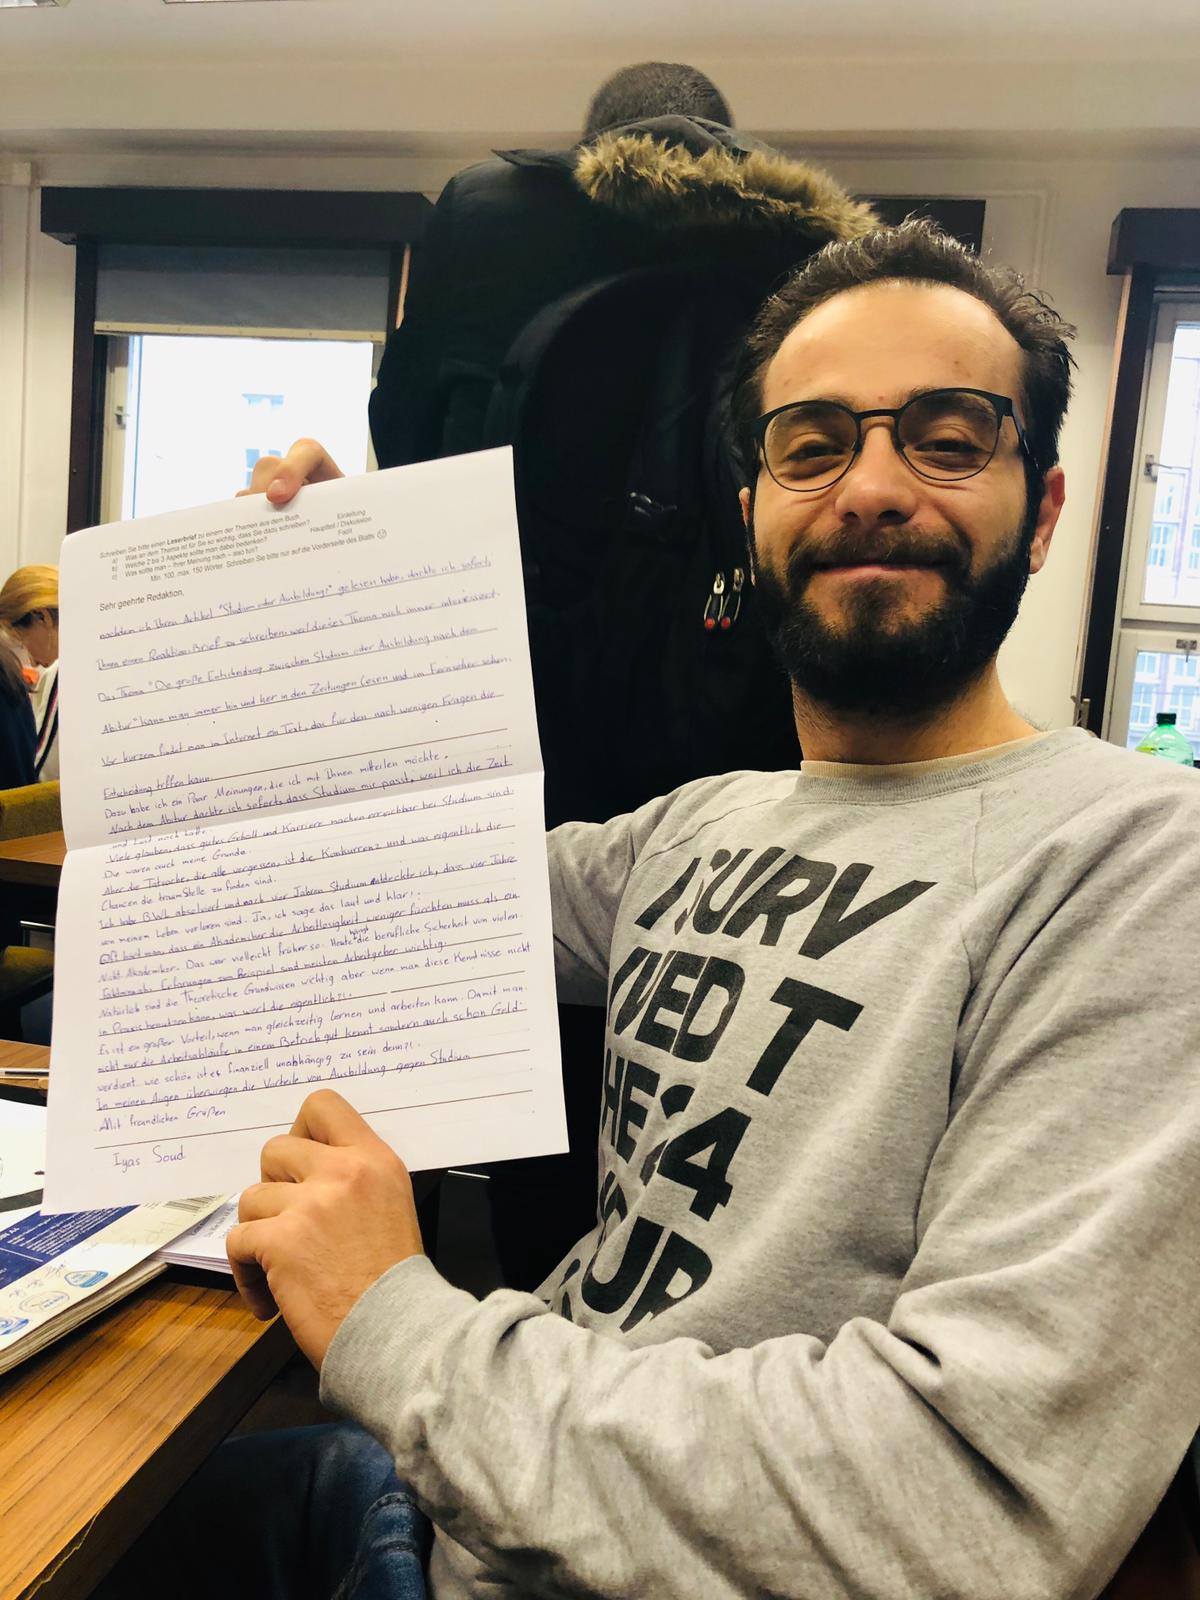 Schreiben Sie bitte einen Leserbrief zu einem der Themen aus dem Buch.
a) Was an dem Thema ist für Sie so wichtig, dass Sie dazu schreiben? Einleitung
b) Welche 2 bis 3 Aspekte sollte man dabei bedenken? Hauptteil / Diskussion
c) Was sollte man – Ihrer Meinung nach – also tun? Fazit
Min. 100, max. 150 Wörter. Schreiben Sie bitte nur auf die Vorderseite des Blatts
Sehr geehrte Redaktion,
nachdem ich Ihren Artikel "Studium oder Ausbildung?" gelesen habe, dachte ich sofort,
Ihnen einen Redaktion Brief zu schreiben, weil dieses Thema mich immer interessiert.
Das Thema "Die große Entscheidung zwischen Studium oder Ausbildung nach dem
Abitur" kann man immer hin und her in den Zeitungen lesen und im Fernseher sehen.
Vor kurzem findet man im Internet ein Text, das für den nach wenigen Fragen die
Entscheidung triffen kann.
Dazu habe ich ein Paar Meinungen, die ich mit Ihnen mitteilen möchte.
Nach dem Abitur dachte ich sofort, dass Studium mir passt, weil ich die Zeit
und Lust noch hatte.
Viele glauben, dass gutes Gehalt und Karriere machen erreichbar bei Studium sind.
Die waren auch meine Gründe.
Aber die Tatsache, die alle vergessen, ist die Konkurrenz und was eigentlich die
Chancen die traum Stelle zu finden sind.
Ich habe BWL absolviert und nach vier Jahren Studium entdeckte ich, dass vier Jahre
von meinem Leben verloren sind. Ja, ich sage das laut und klar!.
Oft hört man, dass ein Akademiker die Arbeitlosigkeit weniger fürchten muss als ein
Nicht Akademiker. Das war vielleicht früher so. Heute hängt die berufliche Sicherheit von vielen
Faktoren ab. Erfarungen zum Beispiel sind meisten Arbeitgeber wichtig.
Natürlich sind die Theoretische Grundwissen wichtig aber wenn man diese Kenntnisse nicht
in Praxis benutzen kann, was wert die eigentlich?!.
Es ist ein großer Vorteil, wenn man gleichzeitig lernen und arbeiten kann. Damit man
nicht nur die Arbeitsabläufe in einem Betrieb gut kennt sondern auch schon Geld
verdient. wie schön ist es finanziell unabhängig zu sein denn?!.
In meinen Augen überwiegen die Vorteile von Ausbildung gegen Studium
Mit freundlichen Größen
Iyas Soud
I SURV
IVED T
HE 24
HOUR